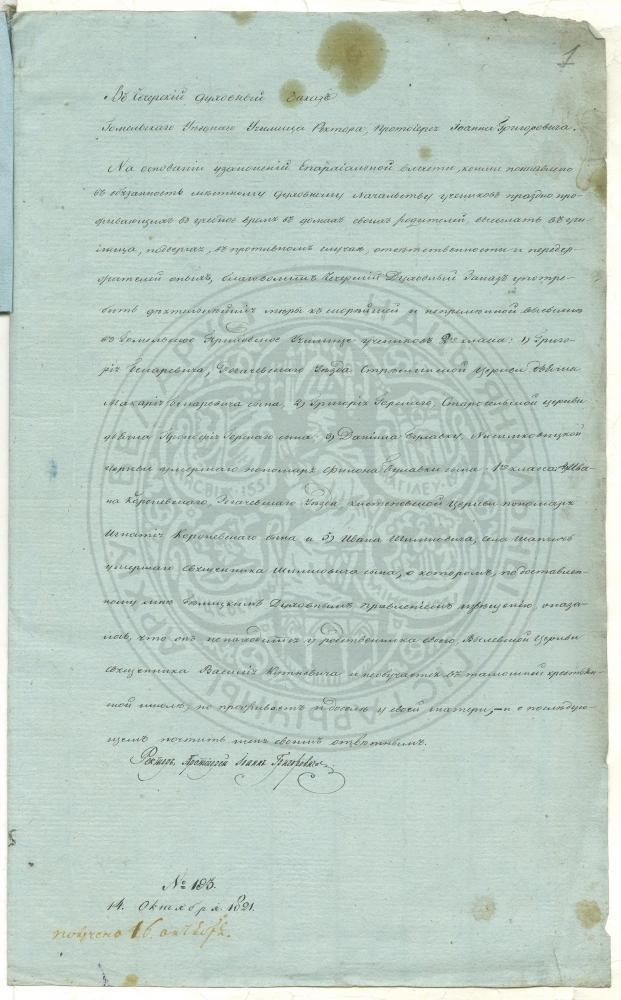 1
Въ Чечерскій Духовный Заказъ
Гомельскаго Уѣзднаго Училища Ректора, Протоіерея Іоанна Григоровича.
На основаніи узаконеній Епархіальной власти, коими поставлено
въ обязанность мѣстному Духовному Начальству учениковъ праздно про-
живающихъ въ учебное время въ домахъ своихъ родителей, высылать въ учи-
лища, подвергая, въ противномъ случаѣ, отвѣтственности и передер-
жателей оныхъ, благоволитъ Чечерскій Духовный Заказъ употре-
бить дѣятельнѣйшія мѣры къ скорѣйшей и непремѣнной высылкѣ
въ Гомельское Приходское Училище учениковъ 2го класса: 1) Григо-
рія, Рогачевскаго Уѣзда Церкви дьячка
Макарія сына, 2) Григорія Горскаго, Старосельской церкви
дьячка Горскаго сына, 3) Даніила Булавку,
церкви умершаго пономаря Филона Булавки сына: 1го класса: 4) Ива-
на Короневскаго, Рогачевскаго Уѣзда Церкви пономаря
Игнатія Короневскаго сына и 5) Ивана, села
умершаго священника сына, о которомъ, по доставлен-
ному мнѣ Духовнымъ Правленіемъ извѣщенію, оказа-
лось, что онъ не находится у родственника своего, Церкви
священника Василія и не обучается въ тамошней
школѣ, но проживаетъ и доселѣ у своей матери; – и о послѣдую-
щемъ почтить меня своимъ отвѣтнымъ.
Ректоръ, Протоіерей Іоаннъ Григоровичъ
№ 193.
14. Октября 1821.
получено 16 октября.